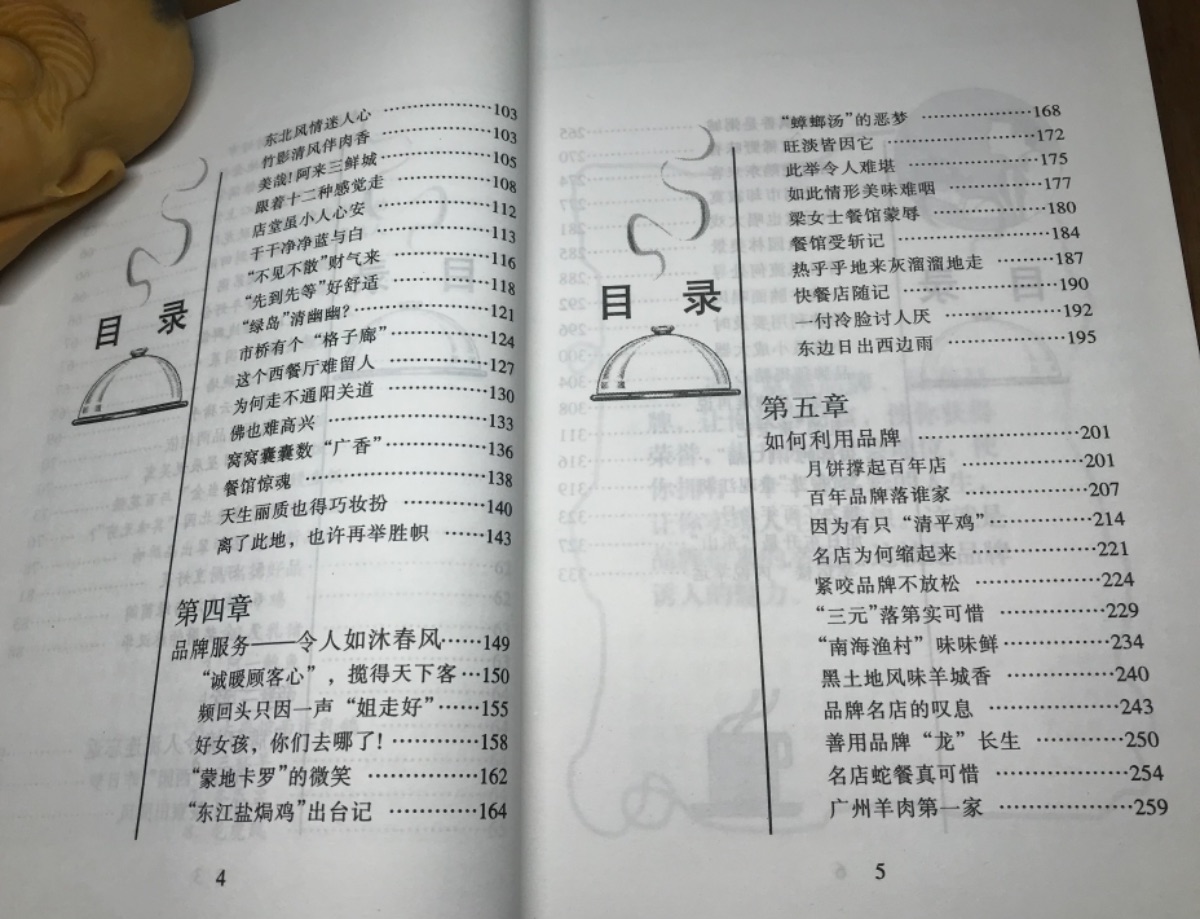 目 录
东北风情迷人心 ……………103
竹影清风伴肉香 ……………103
美哉!阿来三鲜城 ……………105
跟着十二种感觉走 ……………108
店堂虽小人心安 ……………112
干干净净蓝与白 ……………113
“不见不散”财气来 ……………116
“先到先等”好舒适 ……………118
“绿岛”清幽幽? ……………121
市桥有个“格子廊” ……………124
这个西餐厅难留人 ……………127
为何走不通阳关道 ……………130
佛也难高兴 ……………133
窝窝囊囊数“广香” ……………136
餐馆惊魂 ……………138
天生丽质也得巧妆扮 ……………140
离了此地,也许再举胜帜 ……143
第四章
品牌服务——令人如沐春风……149
“诚暖顾客心”,揽得天下客…150
频回头只因一声“姐走好”……155
好女孩,你们去哪了! …………158
“蒙地卡罗”的微笑 ……………162
“东江盐焗鸡”出台记 …………164
4
目 录
“蟑螂汤”的恶梦 ……………168
旺淡皆因它 ……………172
此举令人难堪 ……………175
如此情形美味难咽 ……………177
梁女士餐馆蒙辱 ……………180
餐馆受斩记 ……………184
热乎乎地来灰溜溜地走 …………187
快餐店随记 ……………190
一付冷脸讨人厌 ……………192
东边日出西边雨 ……………195
第五章
如何利用品牌 ……………201
月饼撑起百年店 ……………201
百年品牌落谁家 ……………207
因为有只“清平鸡”……………214
名店为何缩起来 ……………221
紧咬品牌不放松 ……………224
“三元”落第实可惜 ……………229
“南海渔村”味味鲜……………234
黑土地风味羊城香 ……………240
品牌名店的叹息 ……………243
善用品牌“龙”长生 ……………250
名店蛇餐真可惜 ……………254
广州羊肉第一家 ……………259
5